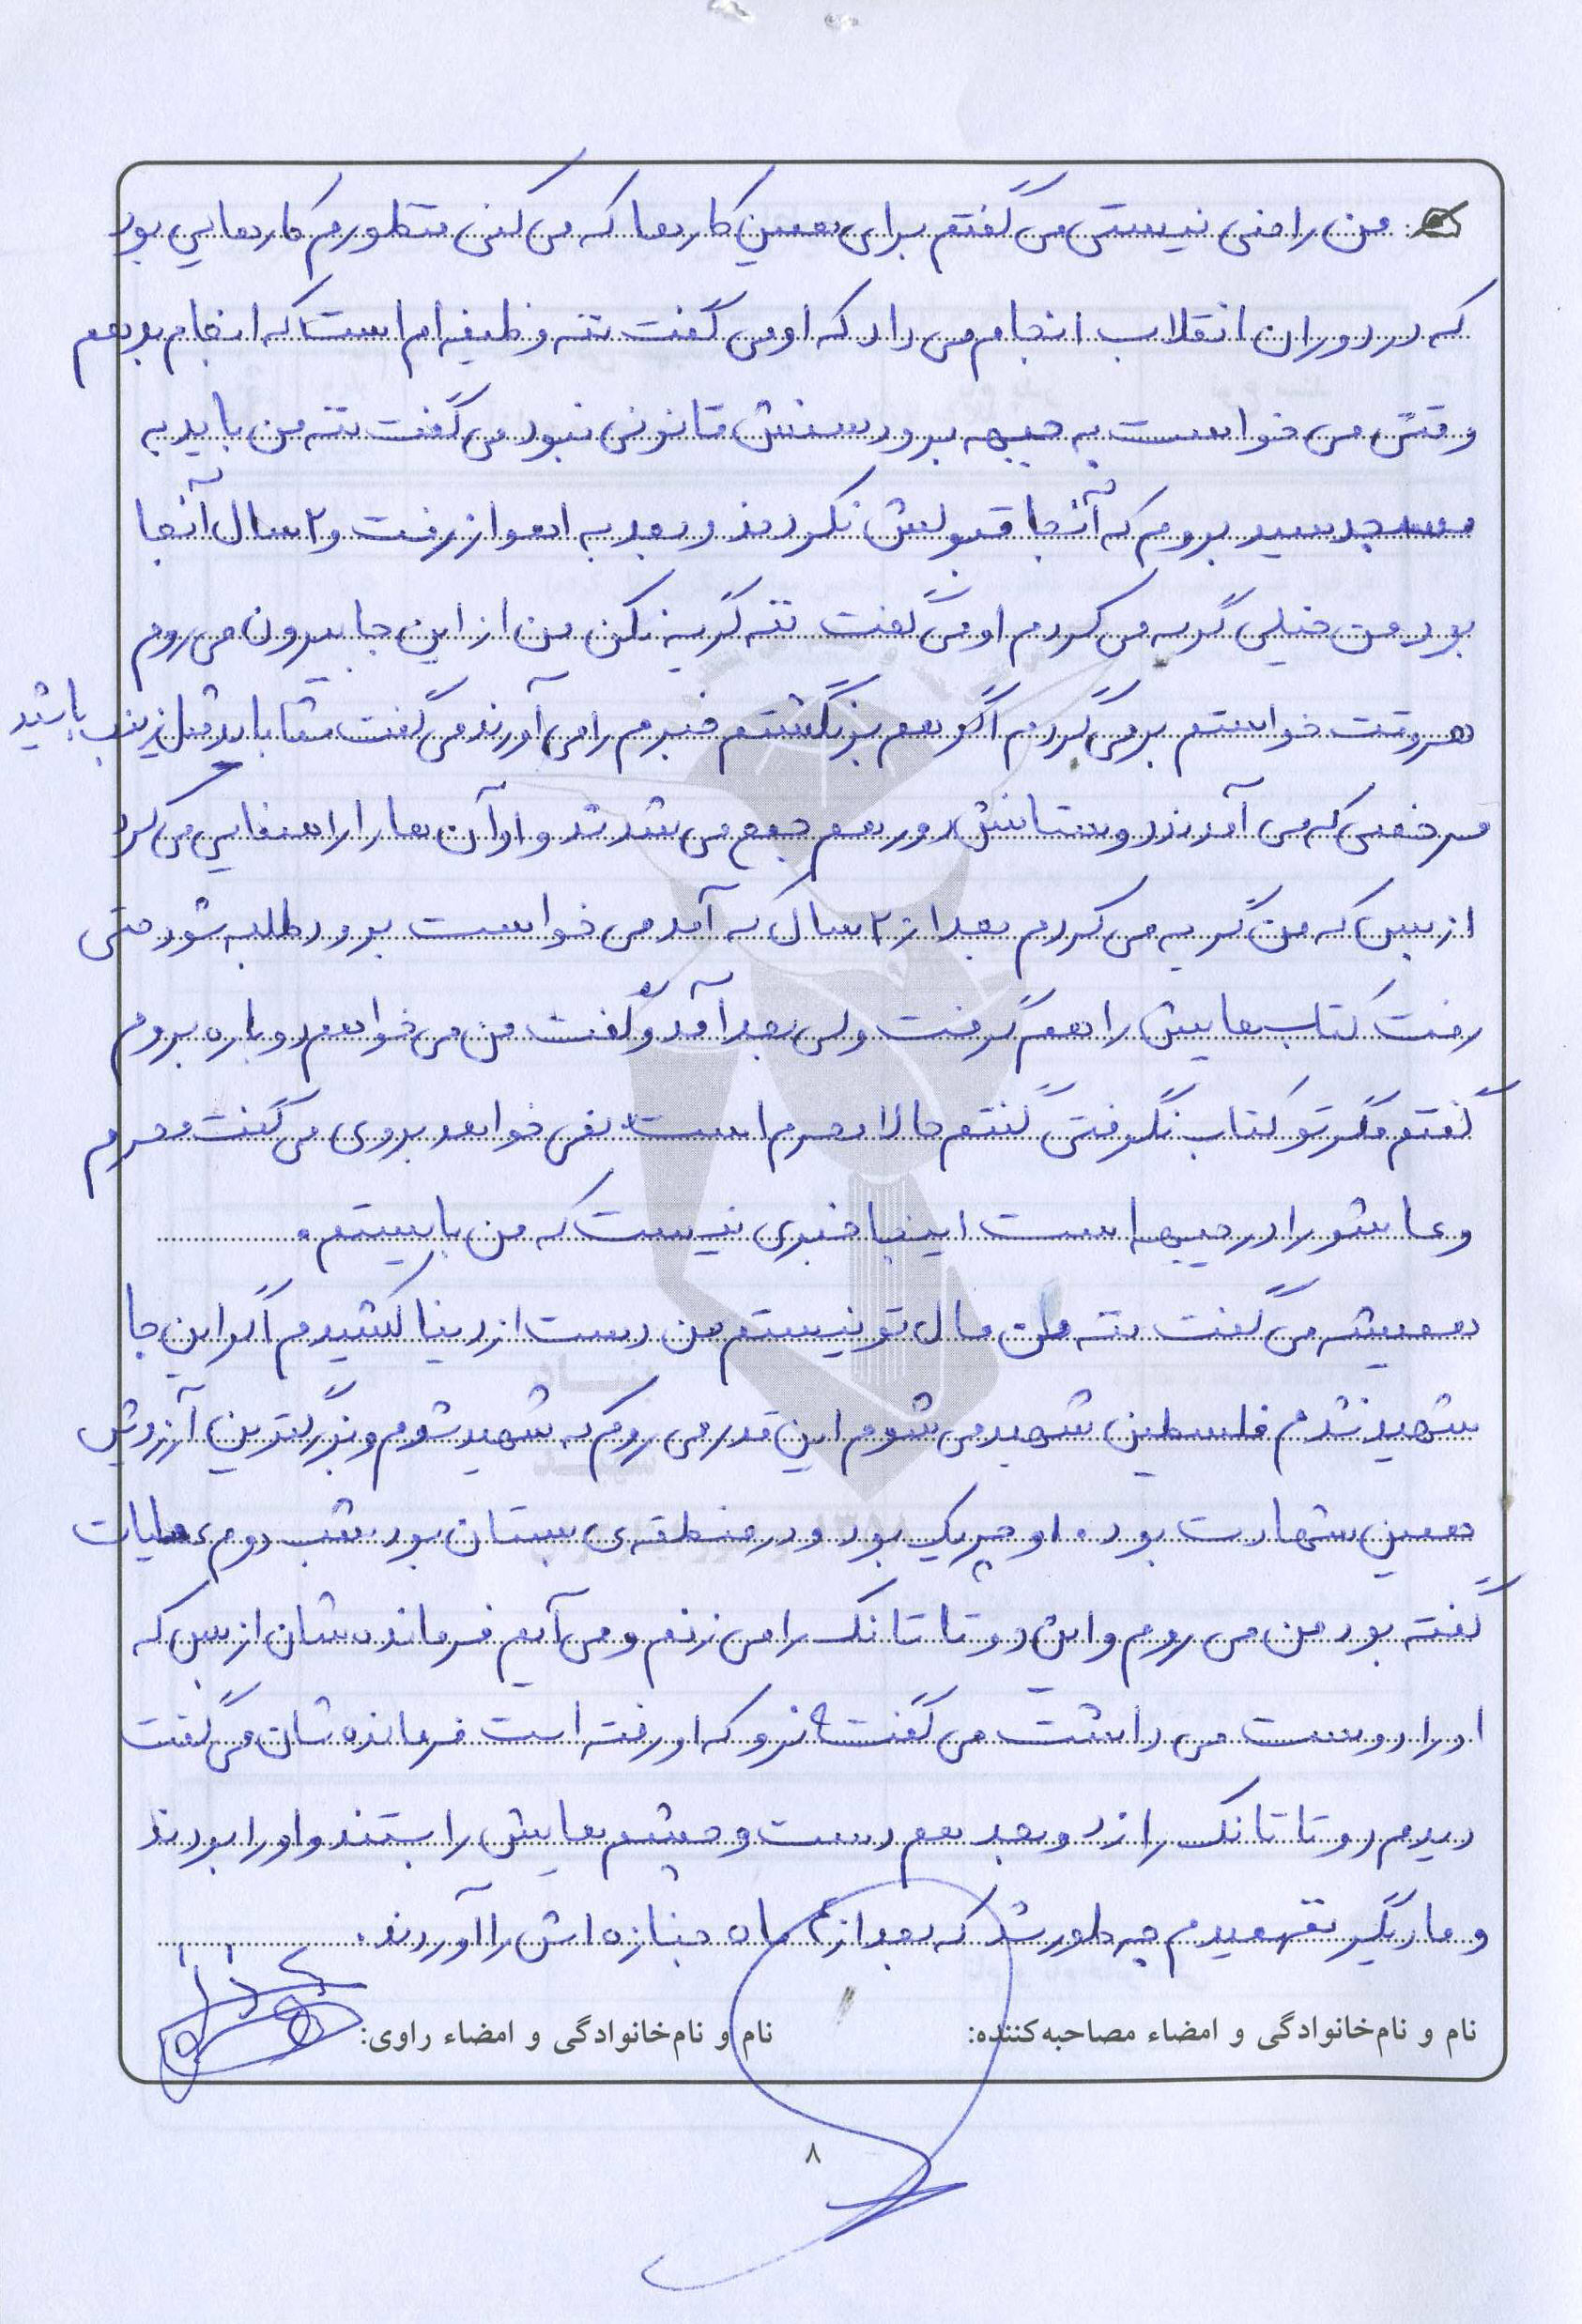 من راضی نیستی می گفتم برای همین کارها که می کنی منظورم کارهایی بود
که در دوران انقلاب انجام می داد که او می گفت ننه وظیفه ام است که انجام بدهم
وقتی می خواست به جبهه برود سنش قانونی نبود می گفت ننه من باید به
مسجد سید بروم که آنجا قبولش نکردند و بعد به اهواز رفت و ۲ سال آنجا
بود من خیلی گریه می کردم او می گفت ننه گریه نکن من از این جا بیرون می روم
هر وقت خواستم برمی گردم اگر هم برنگشتم خبرم را می آورند می گفت شما باید مثل زینب باشید
مرخصی که می آمد دوستانش دور هم جمع می شدند و او آن ها را راهنمایی می کرد
از بس که من گریه می کردم بعد از ۲ سال که آمد می خواست برود طلبه شود حتی
رفت کتاب هایش را هم گرفت ولی بعد آمد و گفت من می خواهم دوباره بروم
گفتم مگر تو کتاب نگرفتی گفتم حالا محرم است نمی خواهد بروی می گفت محرم
و عاشورا در جبهه است اینجا خبری نیست که من بایستم.
همیشه می گفت ننه من مال تو نیستم من دست از دنیا کشیدم اگر این جا
شهید نشدم فلسطین شهید می شوم این قدر می روم که شهید شوم و بزرگترین آرزوش
همین شهادت بود. او چریک بود و در منطقه ی بستان بود شب دوم عملیات
گفته بود من می روم و این دو تا تانک را می زنم و می آیم فرمانده شان از بس که
او را دوست می داشت می گفت نرو که او رفته است فرمانده شان می گفت
دیدم دو تا تانک را زد و بعد هم دست و چشم هایش را بستند و او را بردند
و ما دیگر نفهمیدم چه طور شد که بعد از ماه جنازه اش را آوردند.
نام و نام‌خانوادگی و امضاء مصاحبه‌کننده: نام و نام‌خانوادگی و امضاء راوی:
۸